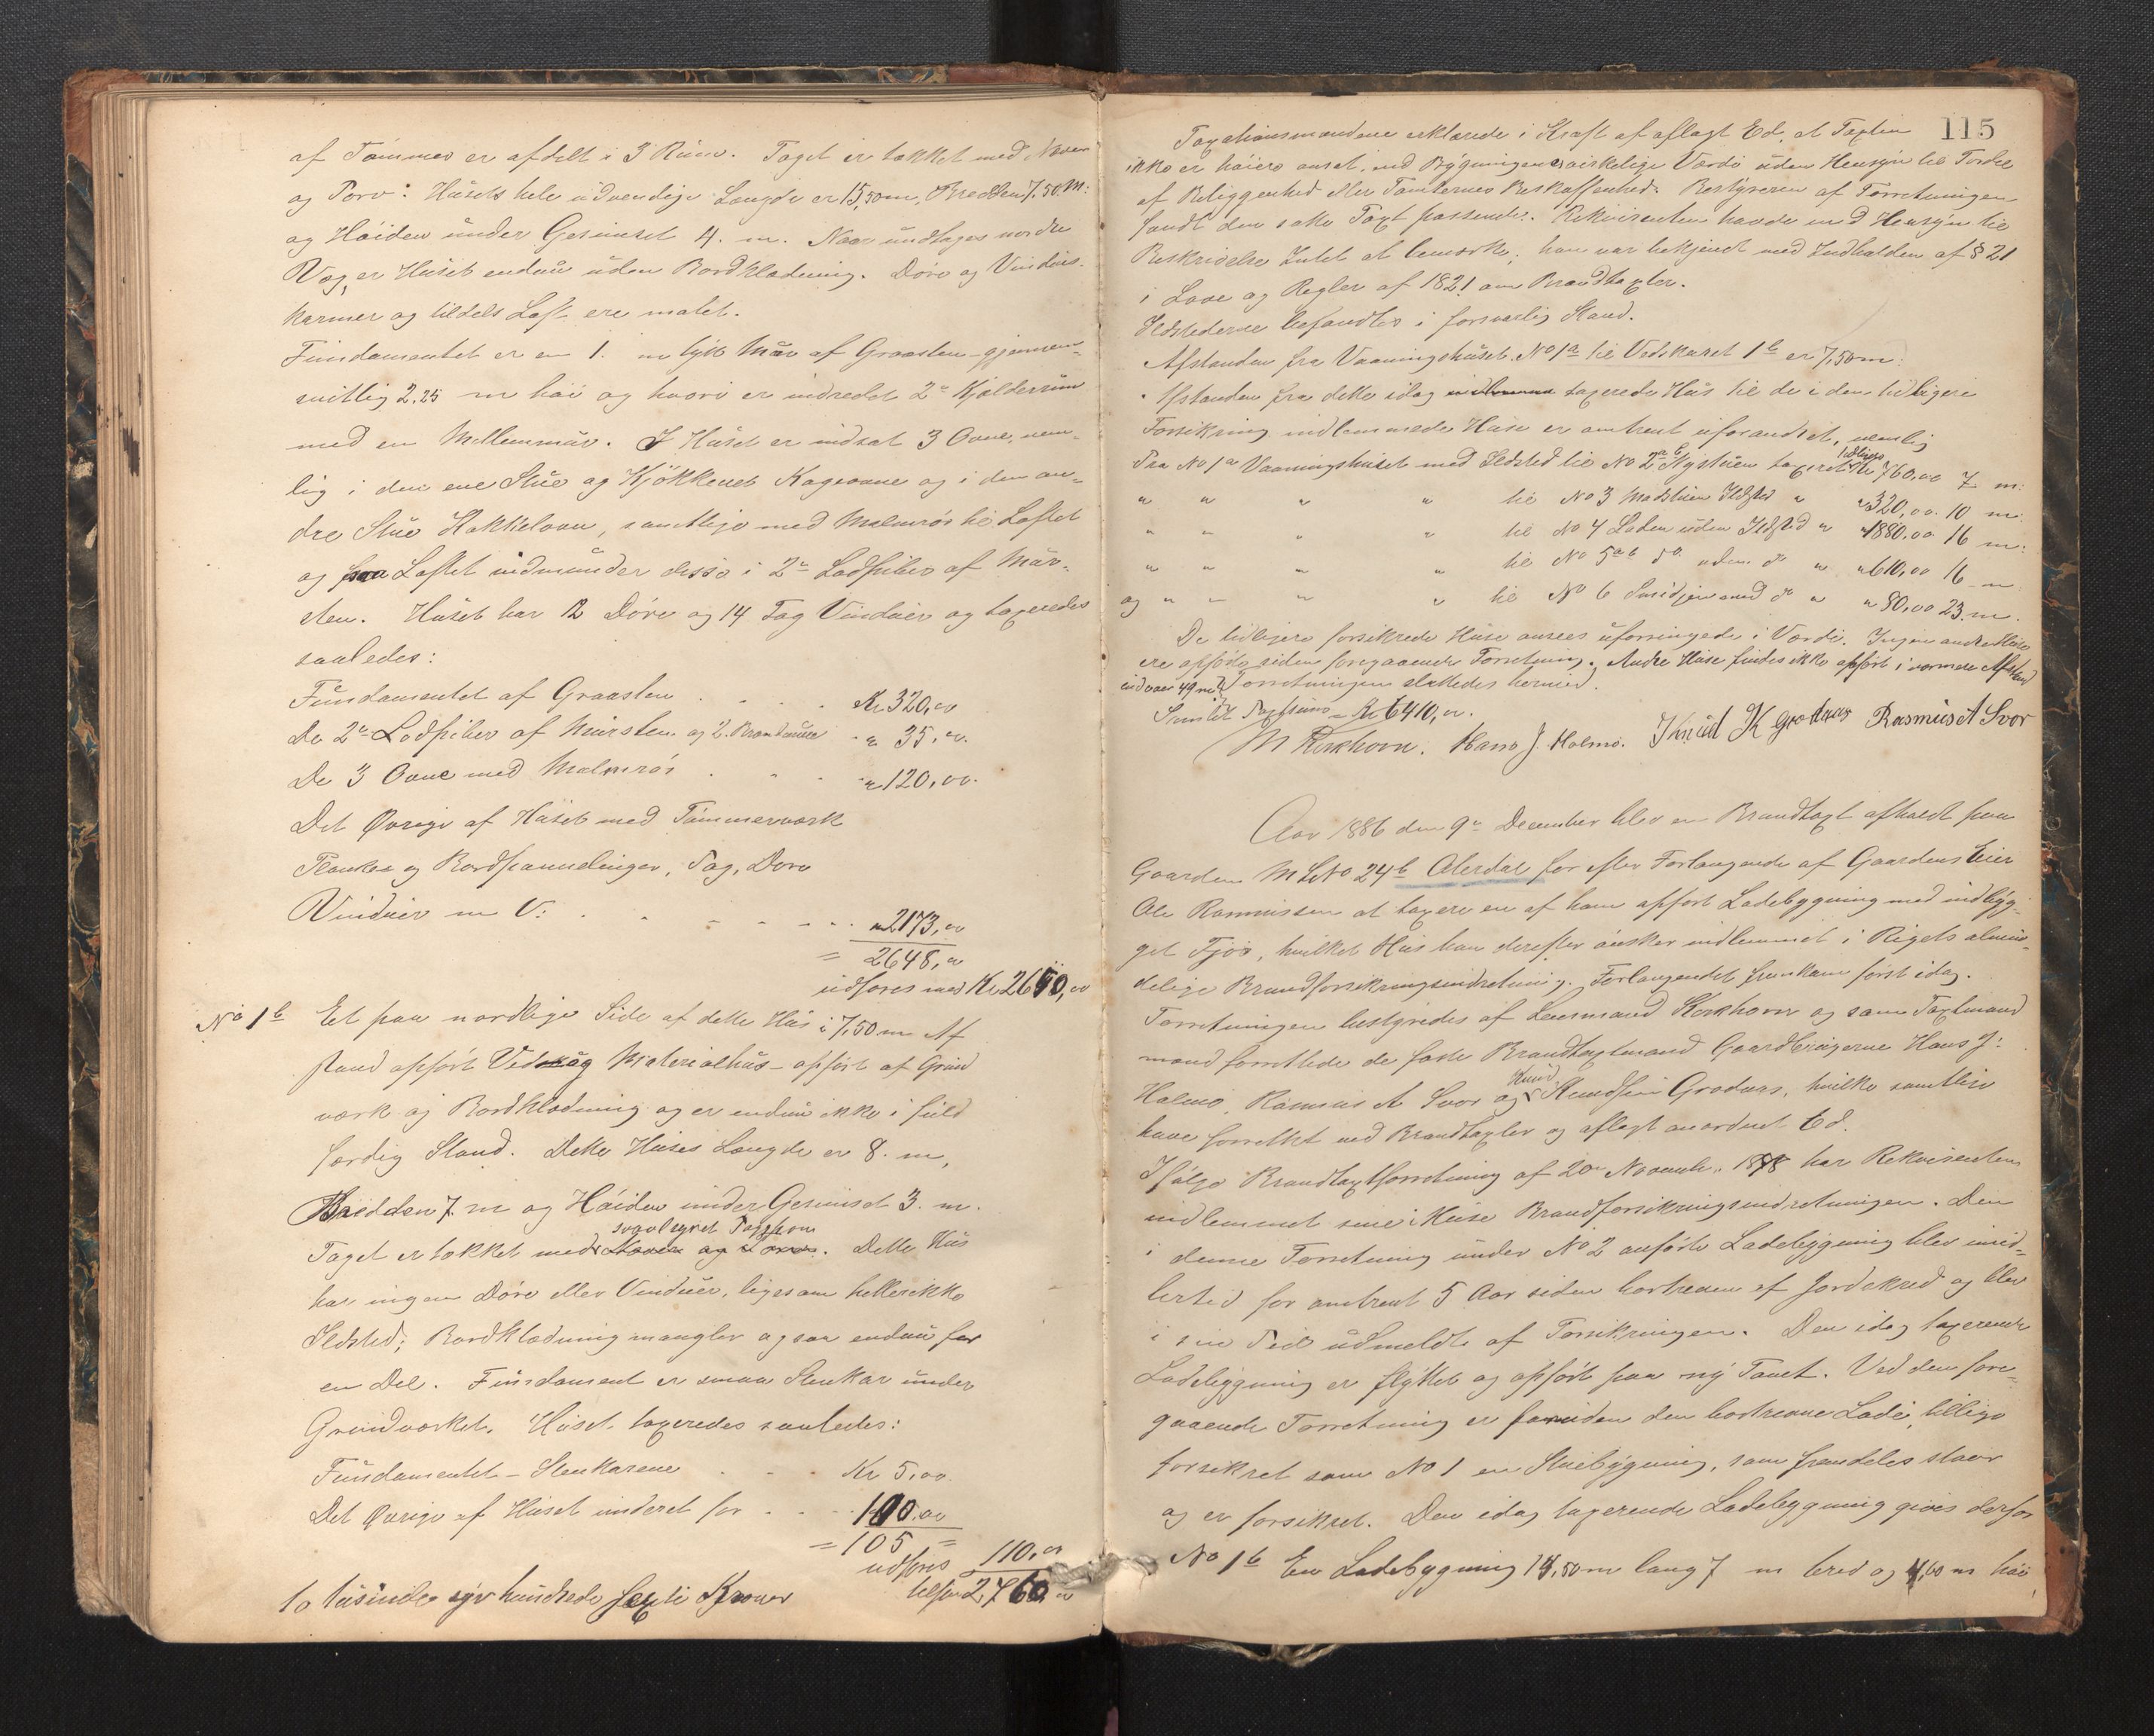 af Tømmer er afdelt i 3 Rum. Taget er tækket med Næver
og Torv: Husets hele udvendige Længde er 15,50 m, Bredden 7,50 M:
og Høiden under Gesimset 4. m. Naar undtages nordre
Væg, er Huset endnu uden Bordklædning. Døre og Vindus-
karmer og tildels Loft ere malet.
Fundamentet er en 1. m tyk Mur af Graasten - gjennem-
snitlig 2.25 m høi og hvori er indredet 2de Kjælderrum
med en Mellemmur. I Huset er indsat 3 Ovne, nem-
lig i den ene Stue og Kjøkkenet Kogeovne og i den an-
dre Stue Kakkelovn, samtlige med Malmrør til Loftet
og paa Loftet indmunder disse i 2de Lodpiber af Mur-
sten. Huset har 12 Døre og 14 Fag Vinduer og taxeredes
saaledes:
Fundamentet af Graasten . . . . Kr 320,00
De 2de Lodpiber af Mursten og 2. Brandmure . " 35,00.
De 3 Ovne med Malmrør . . . " 120,00.
Det Øvrige af Huset med Tømmerværk
Planker og Bordpannelinger, Tag, Døre
Vinduer m V: . . . . . . " 2173,00
= 2648,00
udføres med Kr 2650,00
No 1b Et paa nordlige Side af dette Hus i 7,50 m Af
stand opført Ved og Materialhus - opført af Grind
værk og Bordklædning og er endnu ikke i fuld
færdig Stand. Dette Huses Længde er 8. m,
Bredden 7. m og Høiden under Gesimset 3. m.
svovlsyret Tagspon
Taget er tækket med Næver og Torv. Dette Hus
har ingen Døre eller Vinduer, ligesom hellerikke
Ildsted; Bordklædning mangler ogsaa endnu for
en Del. Fundament er smaa Stenkar under
Grindværket. Huset taxeredes saaledes:
Fundamentet - Stenkarene . . . Kr 5,00.
Det Øvrige af Huset vurderet for . . . 100,00
= 105 =
udføres 110,00
to tusinde syv hundrede sexti Kroner tilsam 2760,00
115
Taxationsmændene erklærede i Kraft af aflagt Ed, at Taxten
ikke er høiere anset, end Bygningernes virkelige Værdi uden Hensyn til Fordel
af Beliggenhed eller Tomternes Beskaffenhed. Bestyreren af Forretningen
fandt den satte Taxt passende. Rekvirenten havde med Hensyn til
Beskrivelse Intet at bemærke; han var bekjendt med Indholdet af § 21
i Love og Regler af 1821 om Brandtaxter.
Ildstederne befandtes i forsvarlig Stand.
Afstanden fra Vaaningshuset No 1a til Vedskuret 1b er 7,50 m:
Afstanden fra dette idag taxerede Hus til de i den tidligere
Forsikring indlemmede Huse er omtrent uforandret, nemlig
Fra No 1a Vaaningshuset med Ildsted til No 2ab Nystuen taxeret tidligere Kr 760,00 7 m:
" " " " til No 3 Madstuen Ildsted " " 320,00. 10 m:
" " " " til No 4 Laden uden Ildsted " " 1880,00 16 m:
" " " " til No 5ab do uden do " " 610,00 16 m
og " " " " til No 6 Smidjen med do " " 80,00 23. m.
De tidligere forsikrede Huse ansees uforringede i Værdi. Ingen andre Huse
ere opførte siden foregaaende Forretning. Andre Huse findes ikke opført i nærmere Afstand
end over 49 m. Forretningen sluttedes hermed.
Samlet Taxtsum = Kr 6410,00.
M Kirkhorn. Hans J. Holmø. Knud K Grodaas Rasmus A Svor
Aar 1886 den 9de December blev en Brandtaxt afholdt paa
Gaarden M L No 24b Otterdal for efter Forlangende af Gaardens Eier
Ole Rasmussen at taxere en af ham opført Ladebygning med indbyg-
get Fjøs, hvilket Hus han derefter ønsker indlemmet i Rigets almin-
delige Brandforsikringsindretning. Forlangendet fremkom først idag.
Forretningen bestyredes af Lensmand Kirkhorn og som Taxtmænd
mænd forrettede de faste Brandtaxtmænd Gaardbrugerne Hans J:
Holmø, Rasmus A Svor og Knud Knudsen Grodaas, hvilke samtlige
have forrettet ved Brandtaxter og aflagt anordnet Ed.
Ifølge Brandtaxtforretning af 20de November 1878 har Rekvirenten
indlemmet sine i Huse Brandforsikringsindretningen. Den
i denne Forretning under No 2 anførte Ladebygning blev imid-
lertid for omtrent 5 Aar siden bortreven af Jordskred og blev
i sin Tid udmeldt af Forsikringen. Den idag taxerende
Ladebygning er flyttet og opført paa ny Tomt. Ved den fore-
gaaende Forretning er foruden den bortrevne Lade, tillige
forsikret som No 1 en Stuebygning, som fremdeles staar
og er forsikret. Den idag taxerende Ladebygning gives derfor
No 1b En Ladebygning 14,50 m lang 7 m bred og 4,00 m høi,